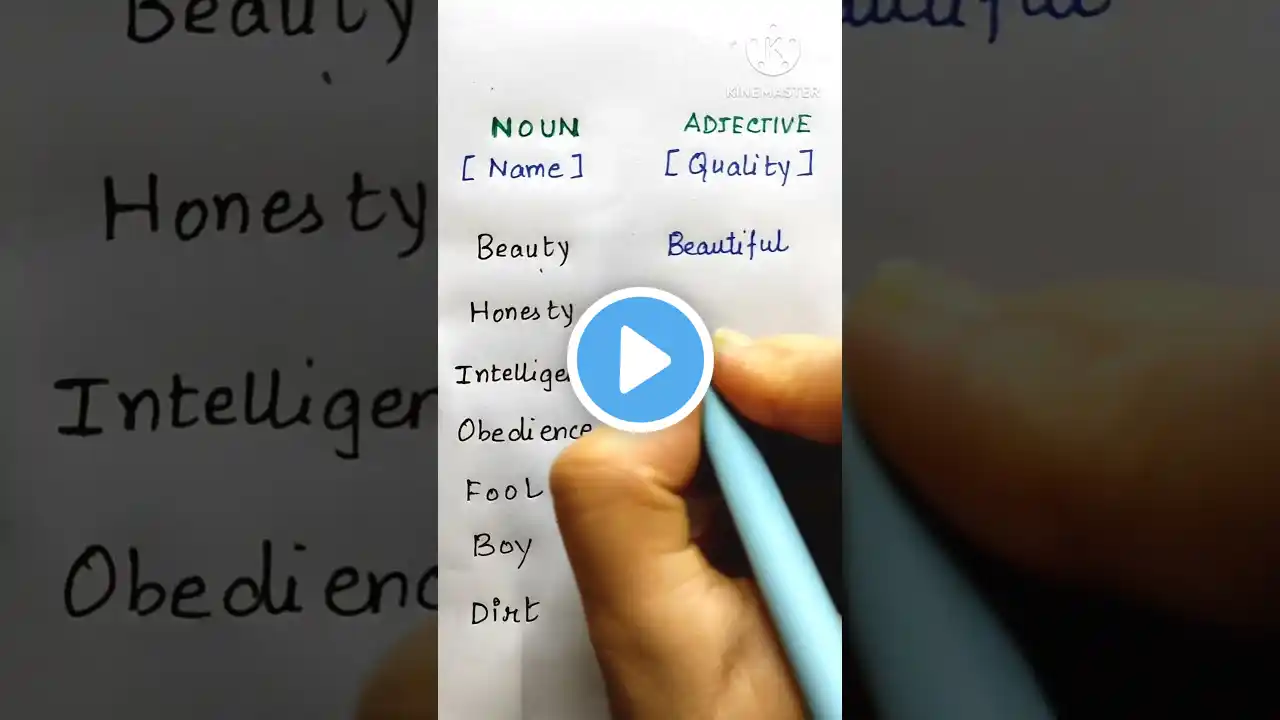 KINEMASTER
NOUN ADJECTIVE
[ Name ] [ Quality ]
Beauty Beautiful
Honesty
Obedience
Fool
Boy
Dirt